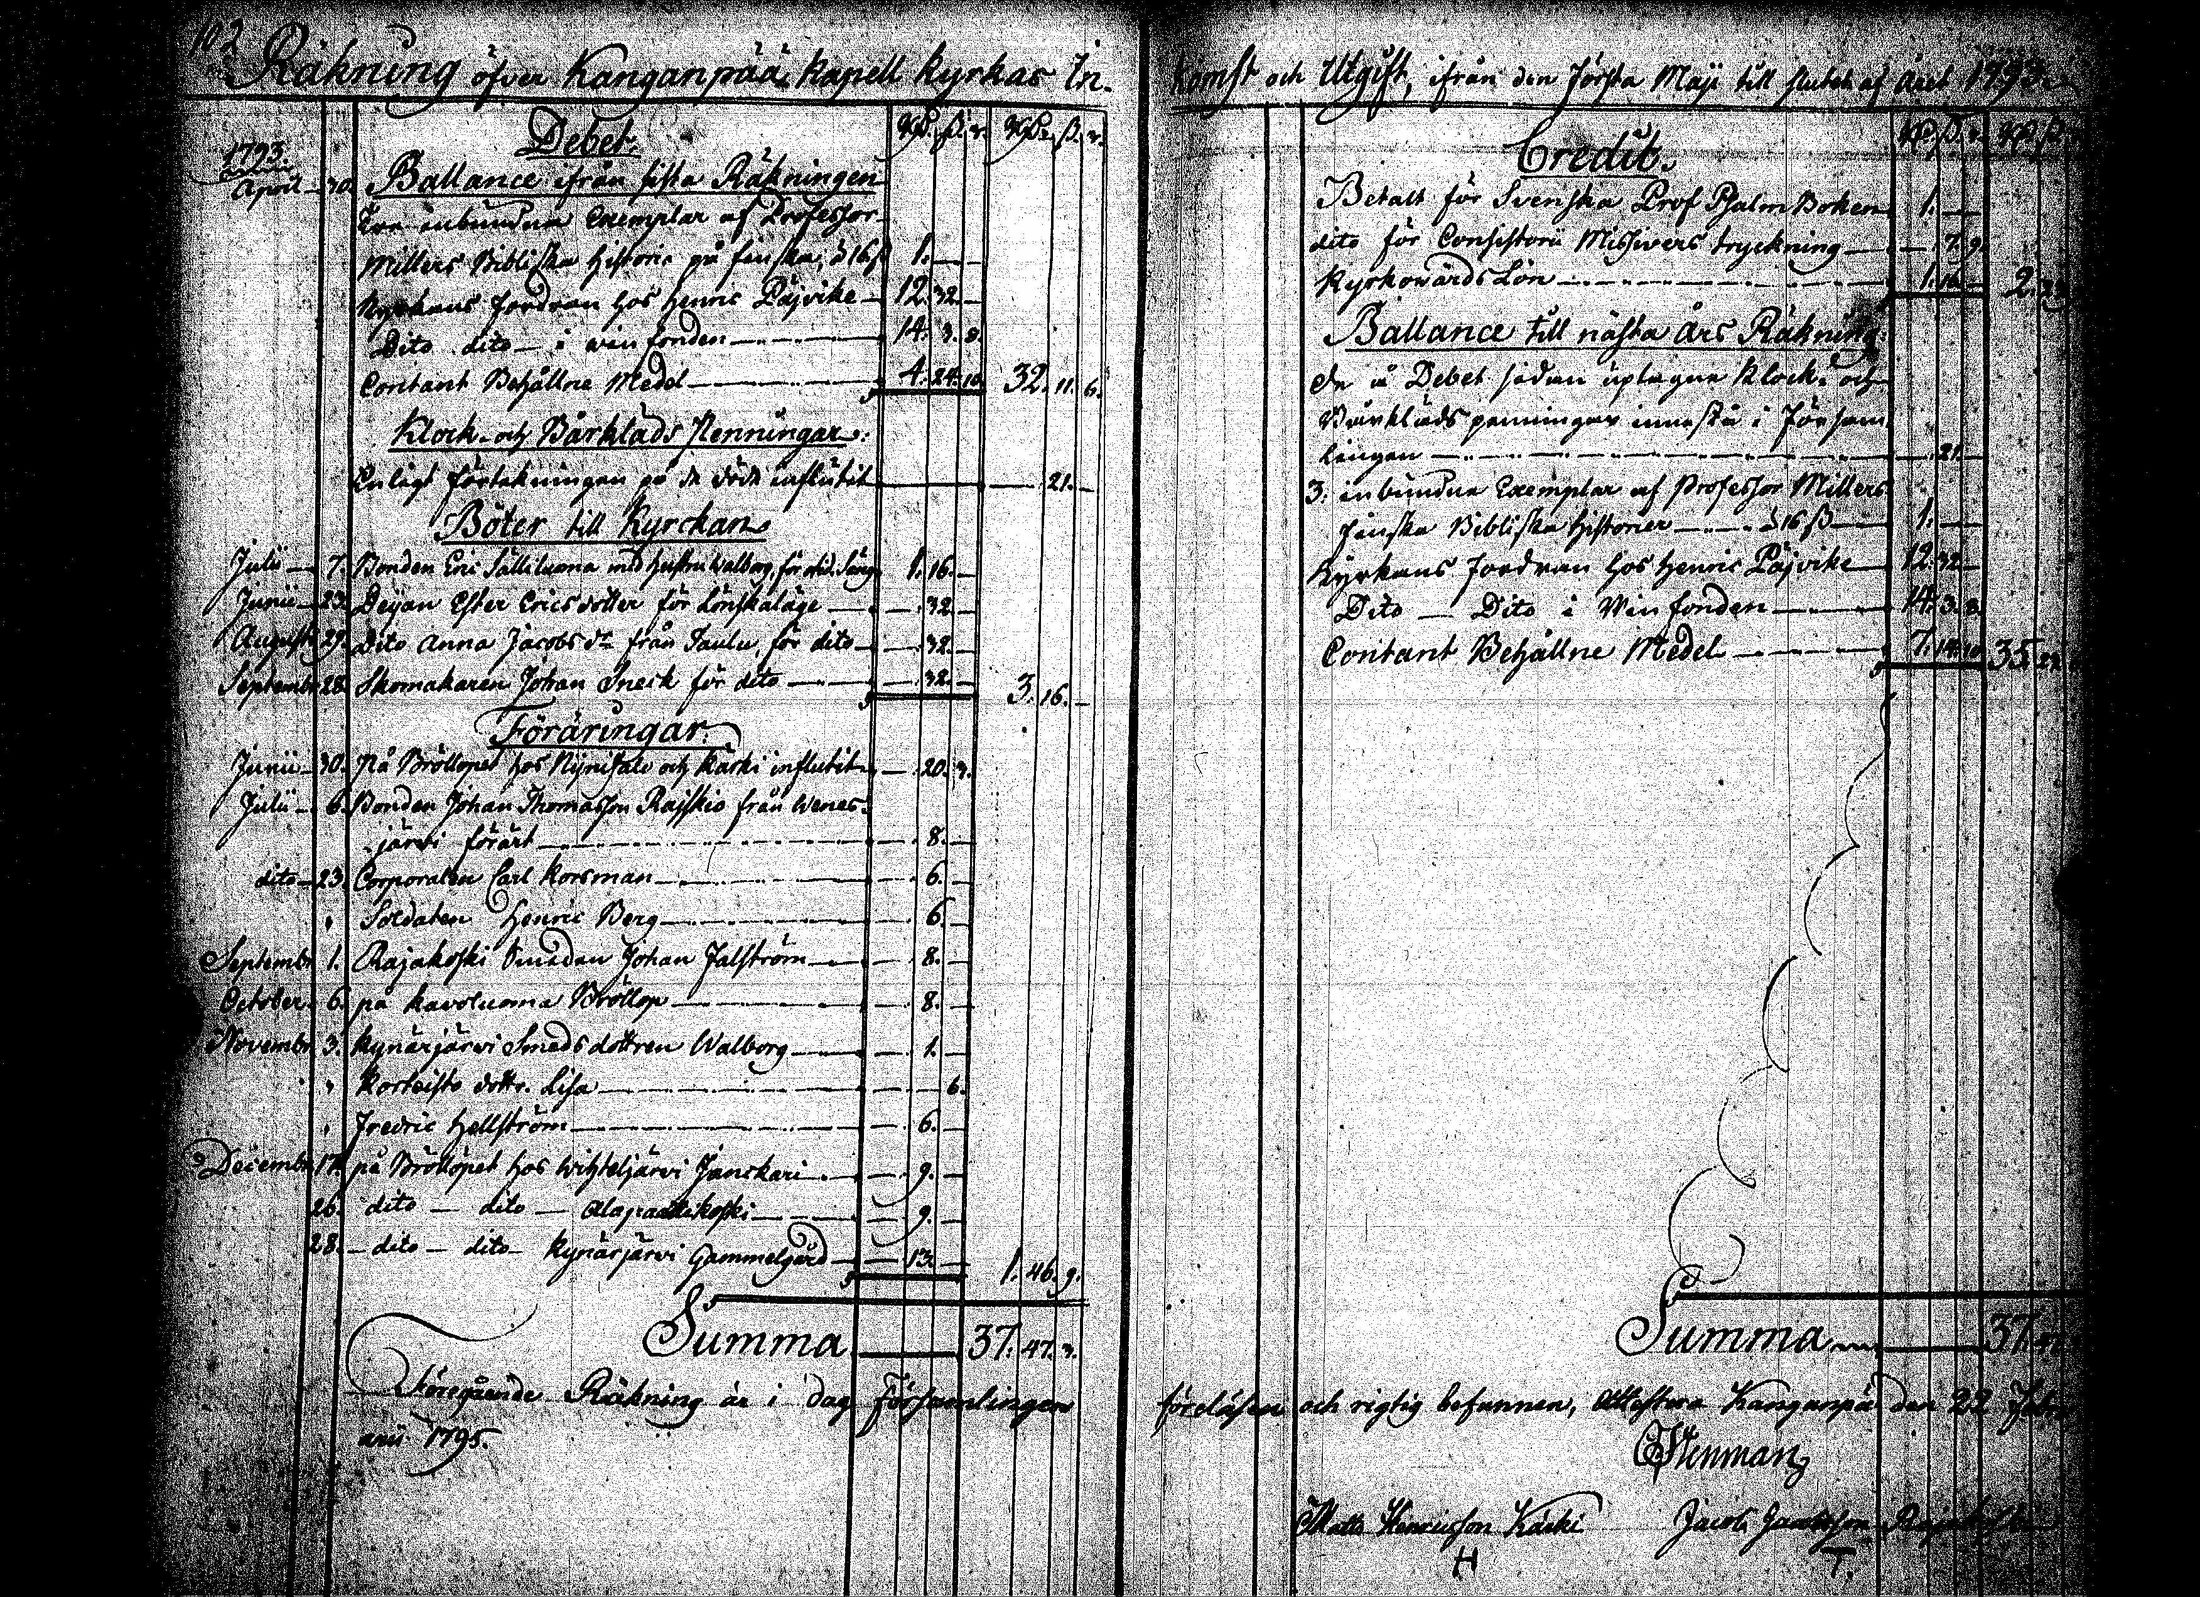 102
Räkning öfver Kanganpää Kapell kyrkas In-
Debet.
RD. ß. r. RD. ß. r.
1793.
April 30. Ballance ifrån sista Räkningen
Tre inbundna Exemplar af Professor
Millers Bibliska Historie på finska, à 16 ß 1. — —
Kyrkans fordran hos Henric Päjvike — 12. 32. —
Dito dito — i vin fonden — 14. 3. 8.
Contant Behållne Medel — 4. 24. 10. 32. 11. 6.
Klock- och Bårkläds Penningar.
Enligt förtekningen på de döde influtit — 21. —
Böter till Kyrckan
Julii — 7. Bonden Eric Sälliluoma med hustru Walborg, för otid. Säng 1. 16. —
Junii — 23. Deÿan Ester Ericsdotter för Lönskaläge — 32. —
Augusti 29. Dito Anna Jacobs dr från Taulu, för dito — 32. —
Septembr 28. Skomakaren Johan Sneck för dito — 32. — 3. 16. —
Föräringar.
Junii — 30. På Bröllopet hos Nÿnisalo och Karki influtit — 20. 3.
Julii — 6. Bonden Johan Thomasson Rajskio från Wenes-
järvi förärt — 8. —
dito — 23. Corporalen Carl Korsman — 6. —
" Soldaten Henric Berg — 6. —
Septembr 1. Rajakoski Smeden Johan Falström — 8. —
October 6. på Kavoluoma Bröllop — 8. —
Novembr 3. Kynärjärvi Smeds dottren Walborg — 1. —
" Korteisto dottr. Lisa — 6.
" Fredric Hellström — 6. —
Decembr 17. på Bröllopet hos Wihteljärvi Junckari — 9. —
26. dito — dito — Alapaattikoski — 9. —
28. — dito — dito — Kynärjärvi Gammelgård — 13. — 1. 46. 9.
Summa 37. 47. 3.
Föregående Räkning är i dag Församlingen
arii 1795.
komst och Utgift, ifrån den första Maji till slutet af året 1793.
Credit.
RD ß. r. RD ß.
Betalt för Svenska Prof Psalm Boken 1. —
dito för Consistorii Missivers tryckning — 7. 9.
Kyrkovärds Lön — 1. 16. — 2.
Ballance till nästa års Räkning.
De i Debet sidan uptagne Klock- och
Bårkläds penningar innestå i Försam
lingen — 21. —
3. inbundna Exemplar af Professor Millers
finska Bibliska Historier — à 16 ß — 1. —
Kyrkans fordran hos Henric Päjvike — 12. 32 —
Dito — Dito i Win fonden — 14. 3. 8.
Contant Behållne Medel — 7. 14. 10. 35.
Summa 37. 47
föreläsen och rigtig befunnen, Attestera Kanganpää den 22 Febru
Stenman
Matts Henricsson Karki Jacob Jacobsson
H T.